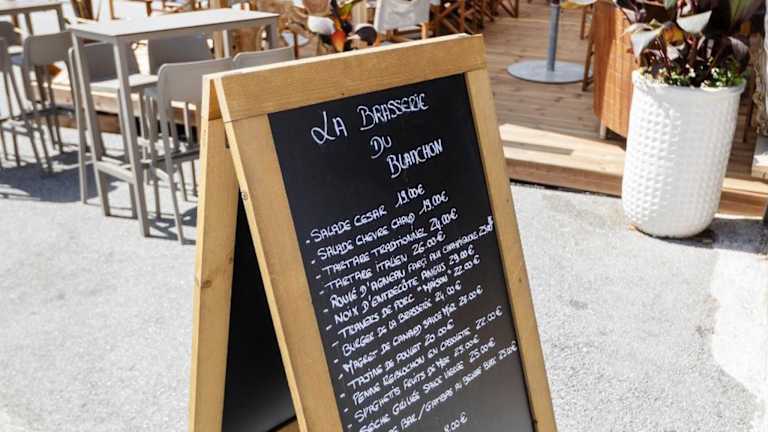 La Brasserie
du
Blanchon
- Salade Cesar 19.00€
- Salade Chevre Chaud 19.00€
- Tartare Traditionnel 24.00€
- Tartare Italien 26.00€
- Roulé d'Agneau Farçi aux Champignons
- Noix d'Entrecôte Angus 29.00€
- Travers de Porc "Maison" 22.00€
- Burger de la Brasserie 24.00€
- Magret de Canard Sauce Miel 28.00€
- Tajine de Poulet 20.00€
- Penne Reblochon en Cassolette 22.00€
- Spaghettis Fruits de Mer 29.00€
- Seiche Grillée Sauce Vierge 25.00€
de Bar / Gambas au Beurre
8.00€